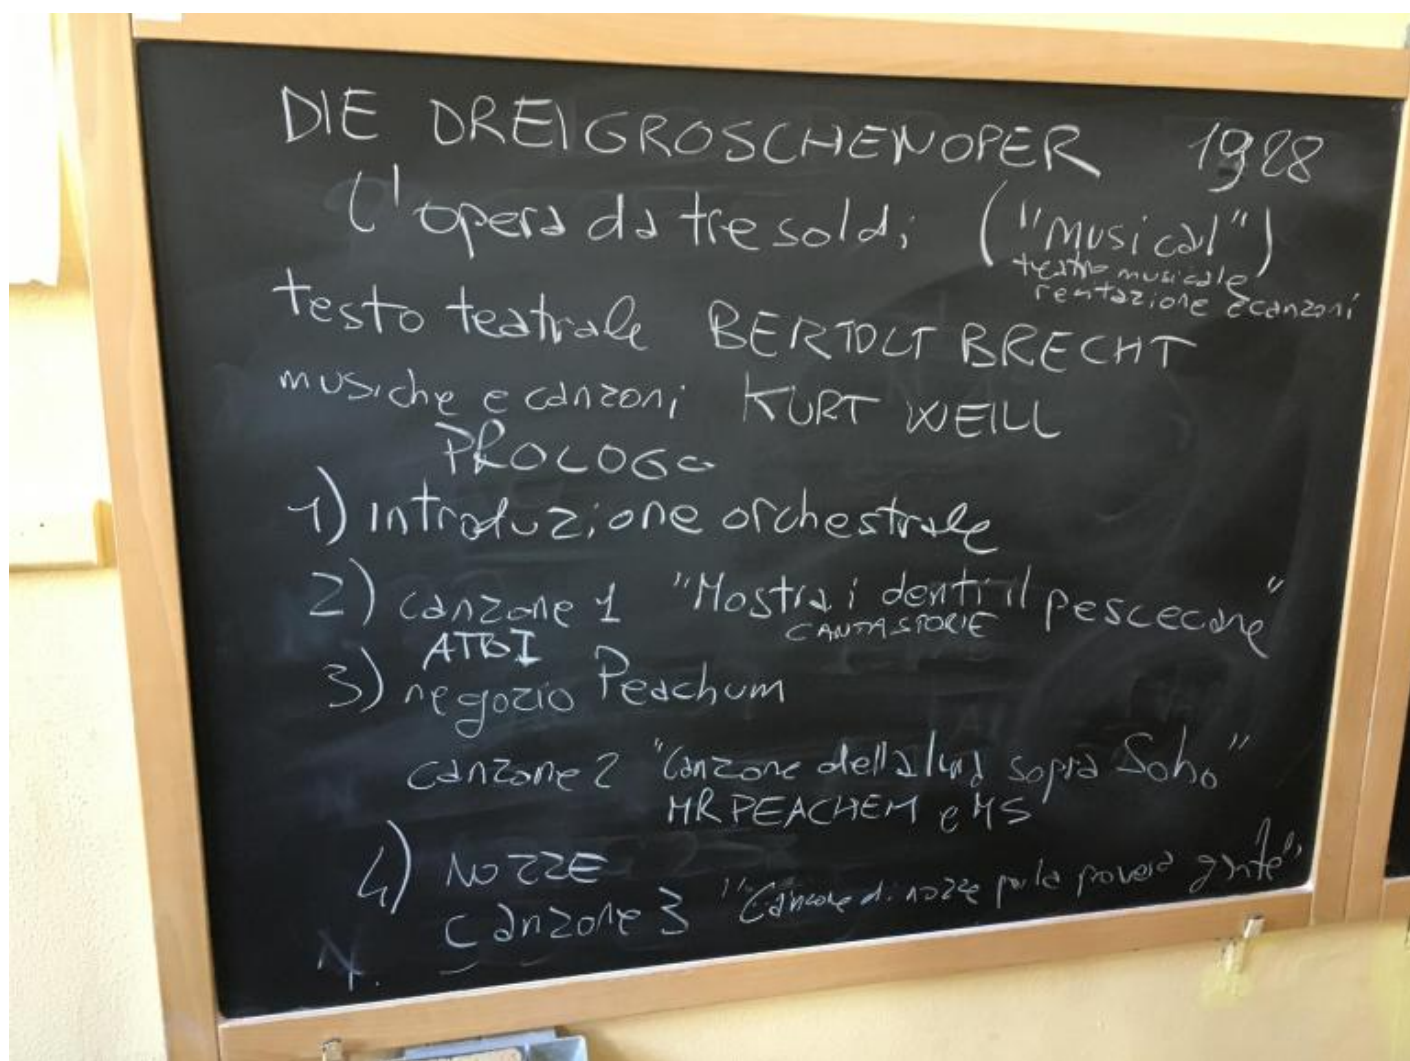 DIE DREIGROSCHENOPER 1928
l'opera da tre soldi ("musical")
teatro musicale
rentazione e canzoni
testo teatrale BERTOLT BRECHT
musiche e canzoni KURT WEILL
PROLOGO
1) introduzione orchestrale
2) canzone 1 "Mostra i denti il pescecane"
CANTASTORIE
ATTO I
3) negozio Peachum
canzone 2 "Canzone della luna sopra Soho"
MR PEACHEM e MS
4) NOZZE
canzone 3 "Canzone di nozze per la povera gente"